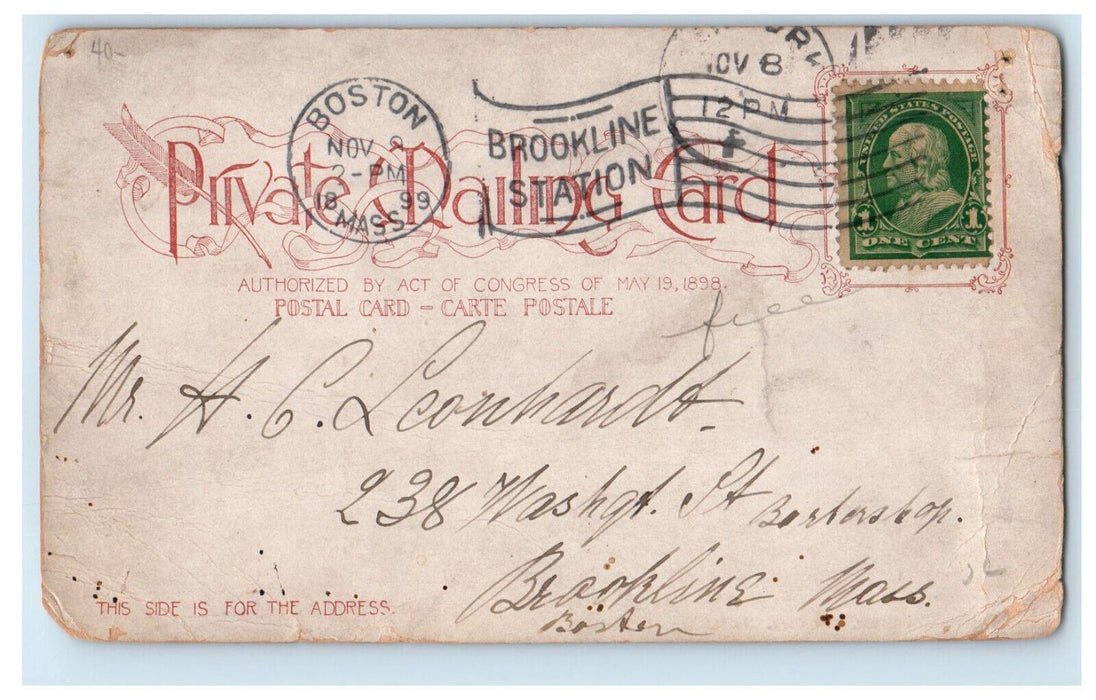 40-
NOV 8
12 PM
BOSTON
NOV 8
2-PM
18 99
MASS
BROOKLINE
STATION
UNITED STATES POSTAGE
1 1
ONE CENT
Private Mailing Card
AUTHORIZED BY ACT OF CONGRESS OF MAY 19, 1898.
POSTAL CARD – CARTE POSTALE
free
Mr. H. C. Leonhardt.
238 Washgt. St Barbershop.
Brookline Mass.
Boston
THIS SIDE IS FOR THE ADDRESS.